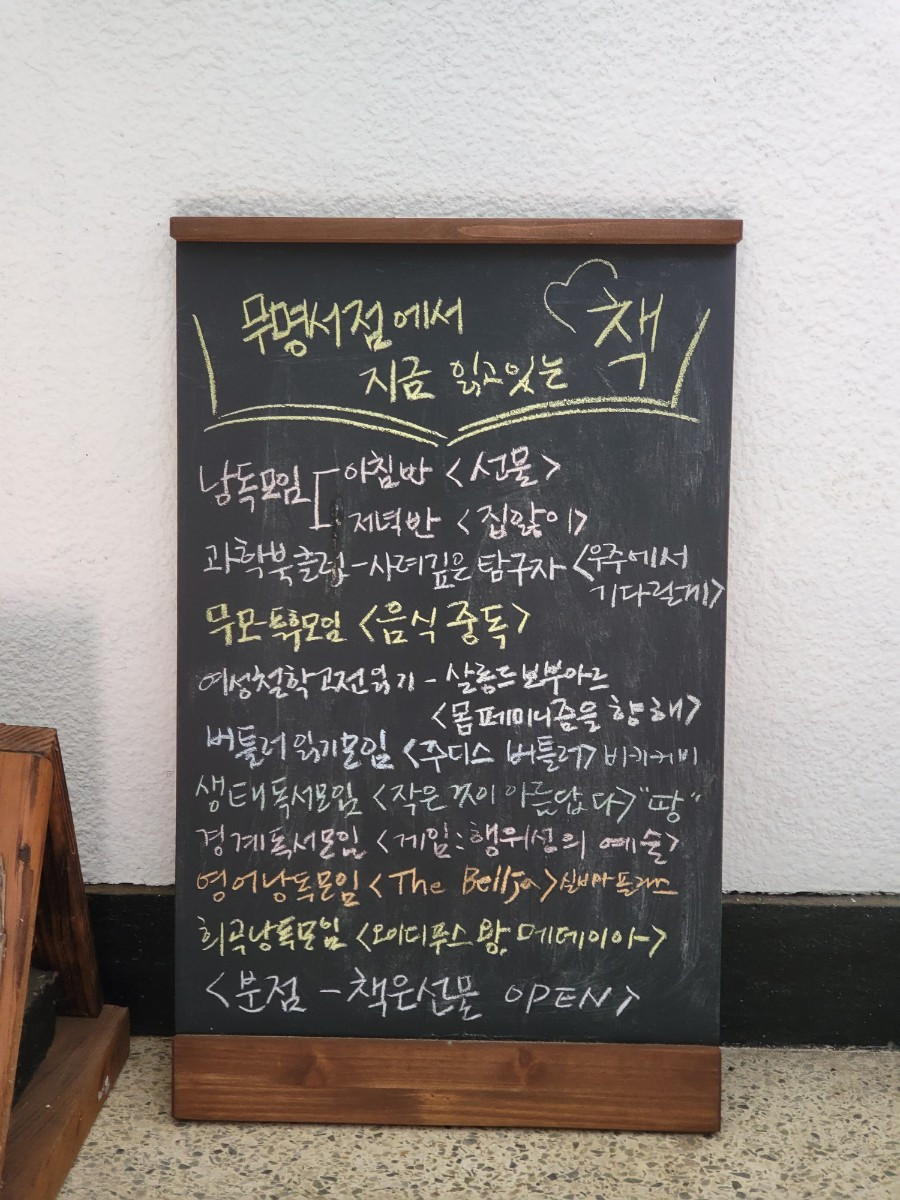 무명서점에서
지금 읽고있는 책
낭독모임 아침반 <선물>
저녁반 <집앓이>
과학북클럽-사려깊은 탐구자 <우주에서
기다릴게>
무모한독후모임 <음식 중독>
여성철학고전읽기 - 살롱드보부아르
<몸 페미니즘을 향해>
버틀러읽기모임 <주디스 버틀러>
생태독서모임 <작은 것이 아름답다> "땅"
경계독서모임 <게임:행위성의 예술>
영어낭독모임 <The Bell Ja> 실비아 플라스
희곡낭독모임 <오이디푸스 왕, 메데이아>
<분점 - 책은선물 OPEN>